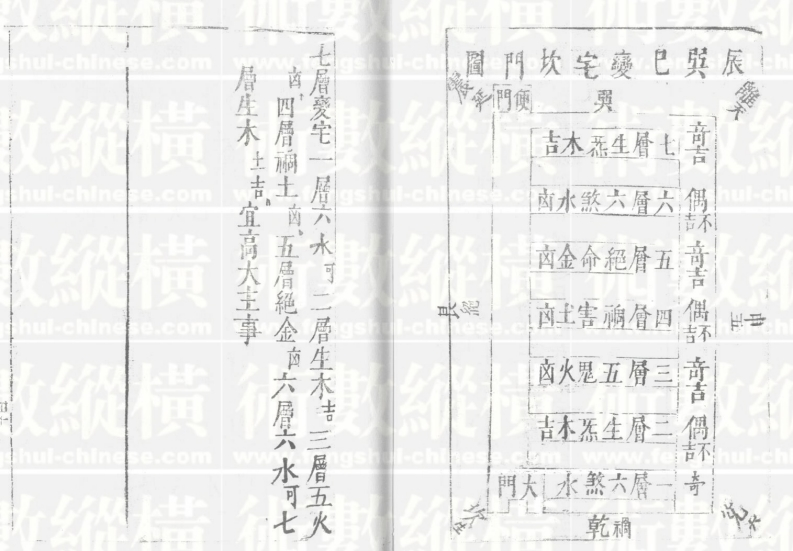 辰巽巳變宅坎門圖
巽
便門
奇吉
七層生炁木吉
偶不吉
六層六煞水凶
奇吉
五層絕命金凶
偶不吉
四層禍害土凶
奇吉
三層五鬼火凶
偶不吉
二層生炁木吉
奇
一層六煞水
大門
禍
乾
七層變宅一層六水可二層生木吉三層五火
凶四層禍土凶五層絕金凶六層六水可七
層生木土吉宜高大主事